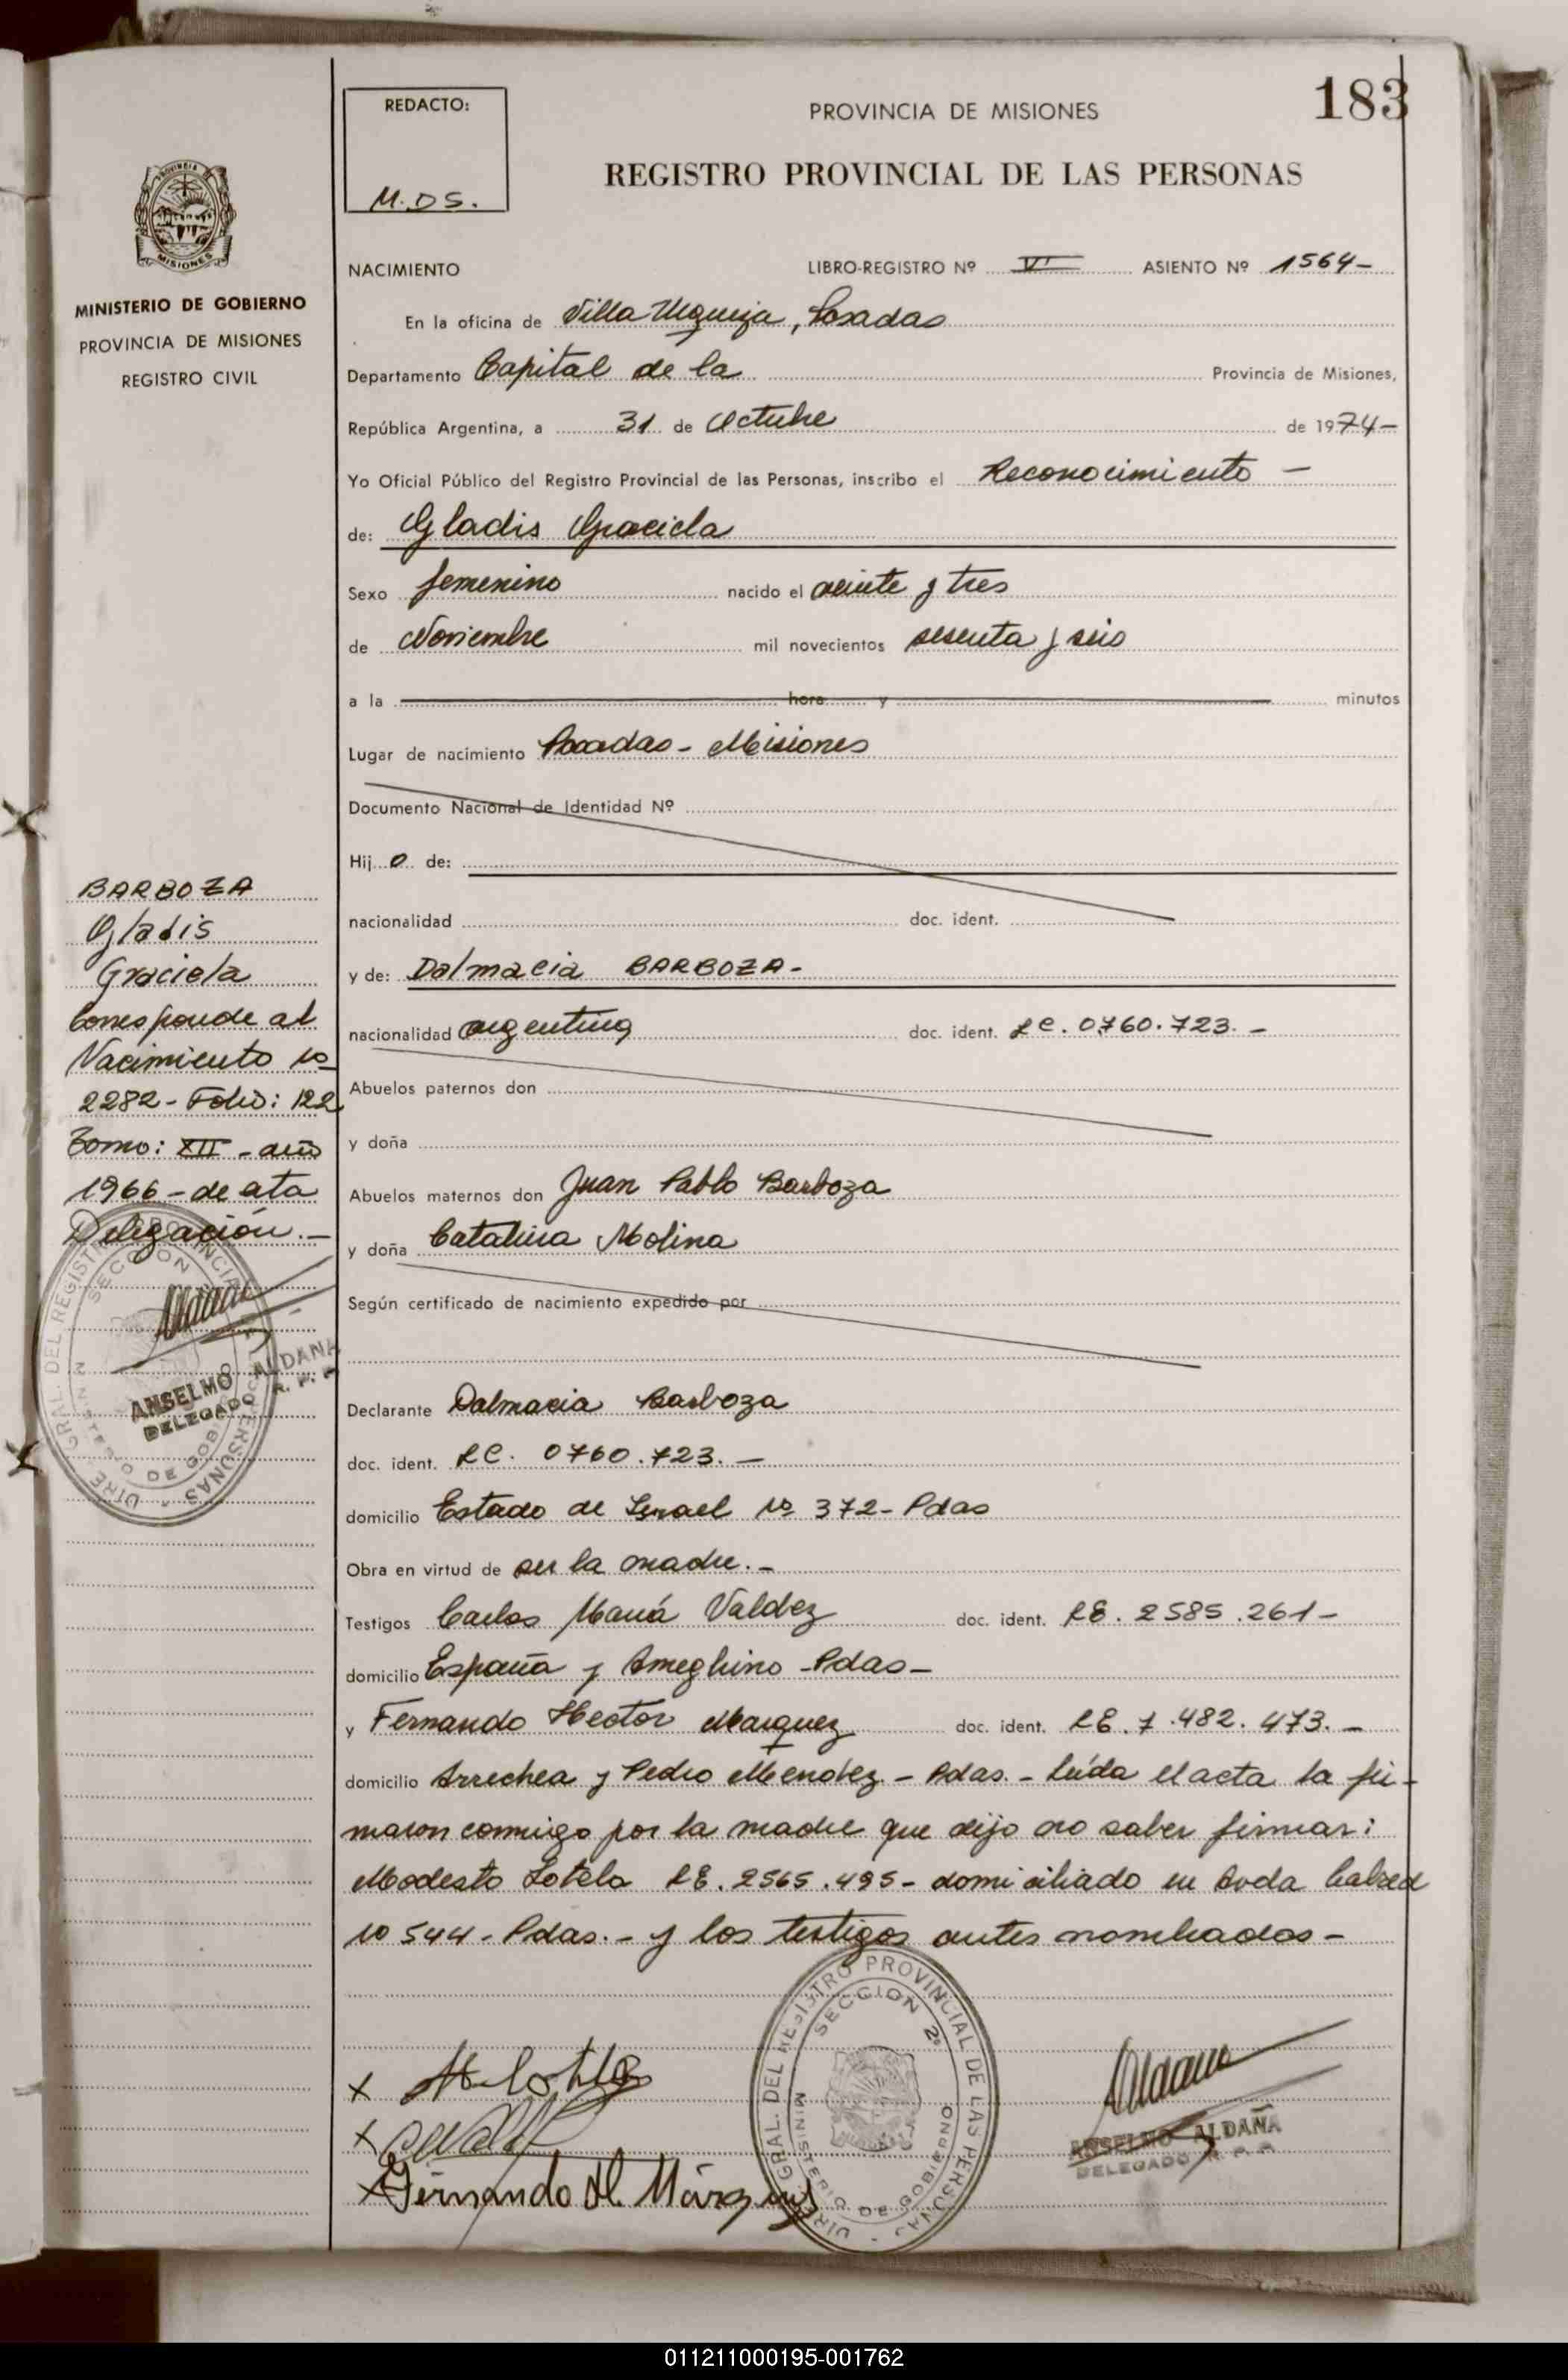 183
REDACTO:
M.DS.
PROVINCIA DE MISIONES
REGISTRO PROVINCIAL DE LAS PERSONAS
MISIONES
MINISTERIO DE GOBIERNO
PROVINCIA DE MISIONES
REGISTRO CIVIL
NACIMIENTO LIBRO-REGISTRO Nº VI ASIENTO Nº 1564-
En la oficina de Villa Urquiza, Posadas
Departamento Capital de la Provincia de Misiones,
República Argentina, a 31 de Octubre de 1974-
Yo Oficial Público del Registro Provincial de las Personas, inscribo el Reconocimiento -
de: Gladis Graciela
Sexo femenino nacido el veinte y tres
de Noviembre mil novecientos sesenta y seis
a la hora y minutos
Lugar de nacimiento Posadas - Misiones
Documento Nacional de Identidad Nº
Hij o de:
nacionalidad doc. ident.
y de: Dalmacia BARBOZA-
nacionalidad argentina doc. ident. LC. 0760.723.-
Abuelos paternos don
y doña
Abuelos maternos don Juan Pablo Barboza
y doña Catalina Molina
Según certificado de nacimiento expedido por
Declarante Dalmacia Barboza
doc. ident. LC. 0760.723.-
domicilio Estado de Israel Nº 372- Pdas
Obra en virtud de ser la madre.-
Testigos Carlos María Valdez doc. ident. LE. 2585.261-
domicilio España y Ameghino - Pdas-
y Fernando Hector Marquez doc. ident. LE. 7.482.473.-
domicilio Arrechea y Pedro Mendez - Pdas.- Leída el acta la fir-
maron conmigo por la madre que dijo no saber firmar:
Modesto Lotela LE. 2565.495- domiciliado en Avda
Nº 544- Pdas.- y los testigos antes nombrados-
BARBOZA
Gladis
Graciela
Corresponde al
Nacimiento Nº
2282- Folio: 122
Tomo: XII - año
1966- de ata
Delegación.-
ANSELMO ALDAÑA
DELEGADO R. P. P.
DIRE. GRAL. DEL REGISTRO PROVINCIAL DE LAS PERSONAS
SECCION 2ª
MINISTERIO DE GOBIERNO
X
X
X Fernando H. Márquez
ANSELMO ALDAÑA
DELEGADO R. P. P.
011211000195-001762